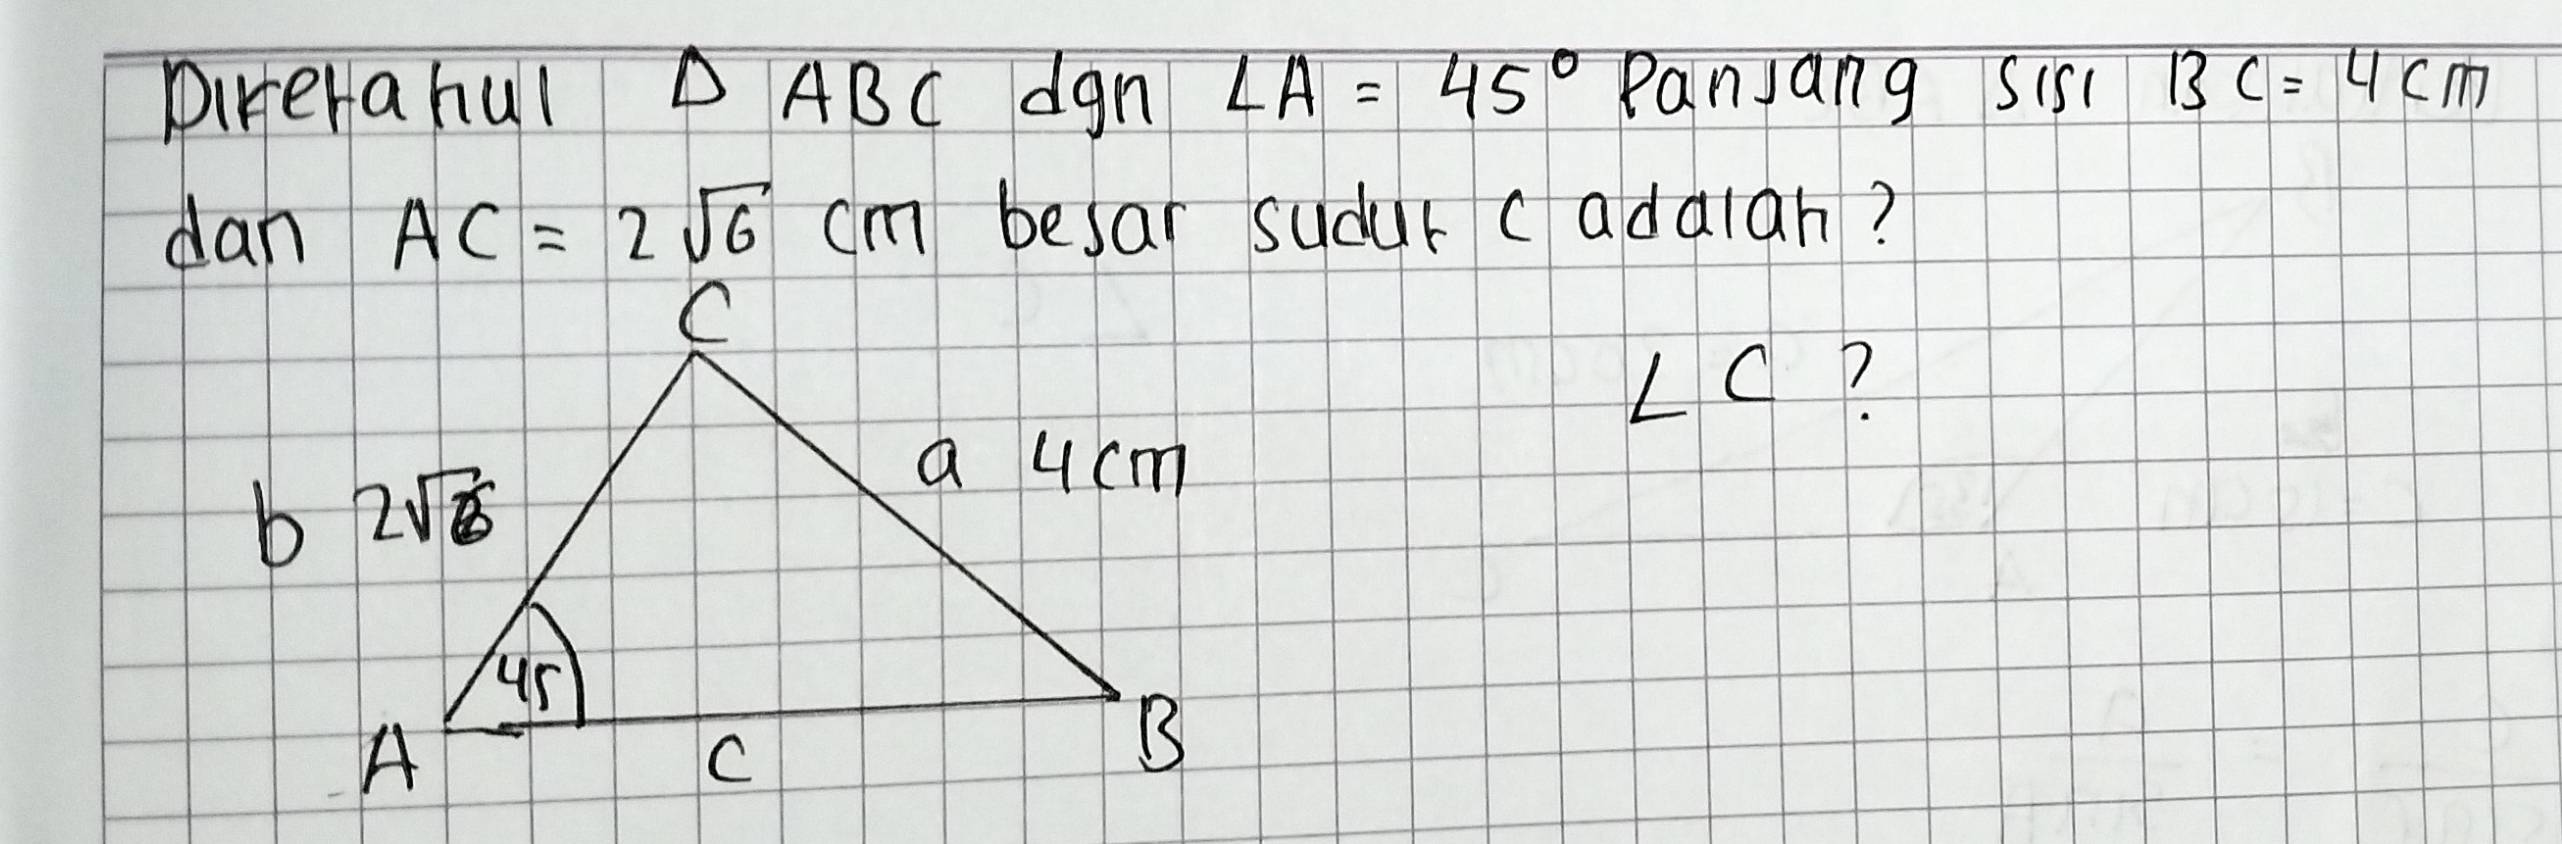 Diketahui Δ ABC dgn ∠A = 45° Panjang sisi BC = 4 cm
dan AC = 2√6 cm besar sudut C adalah?
C
∠ C ?
a 4 cm
b 2√6
45
A c B